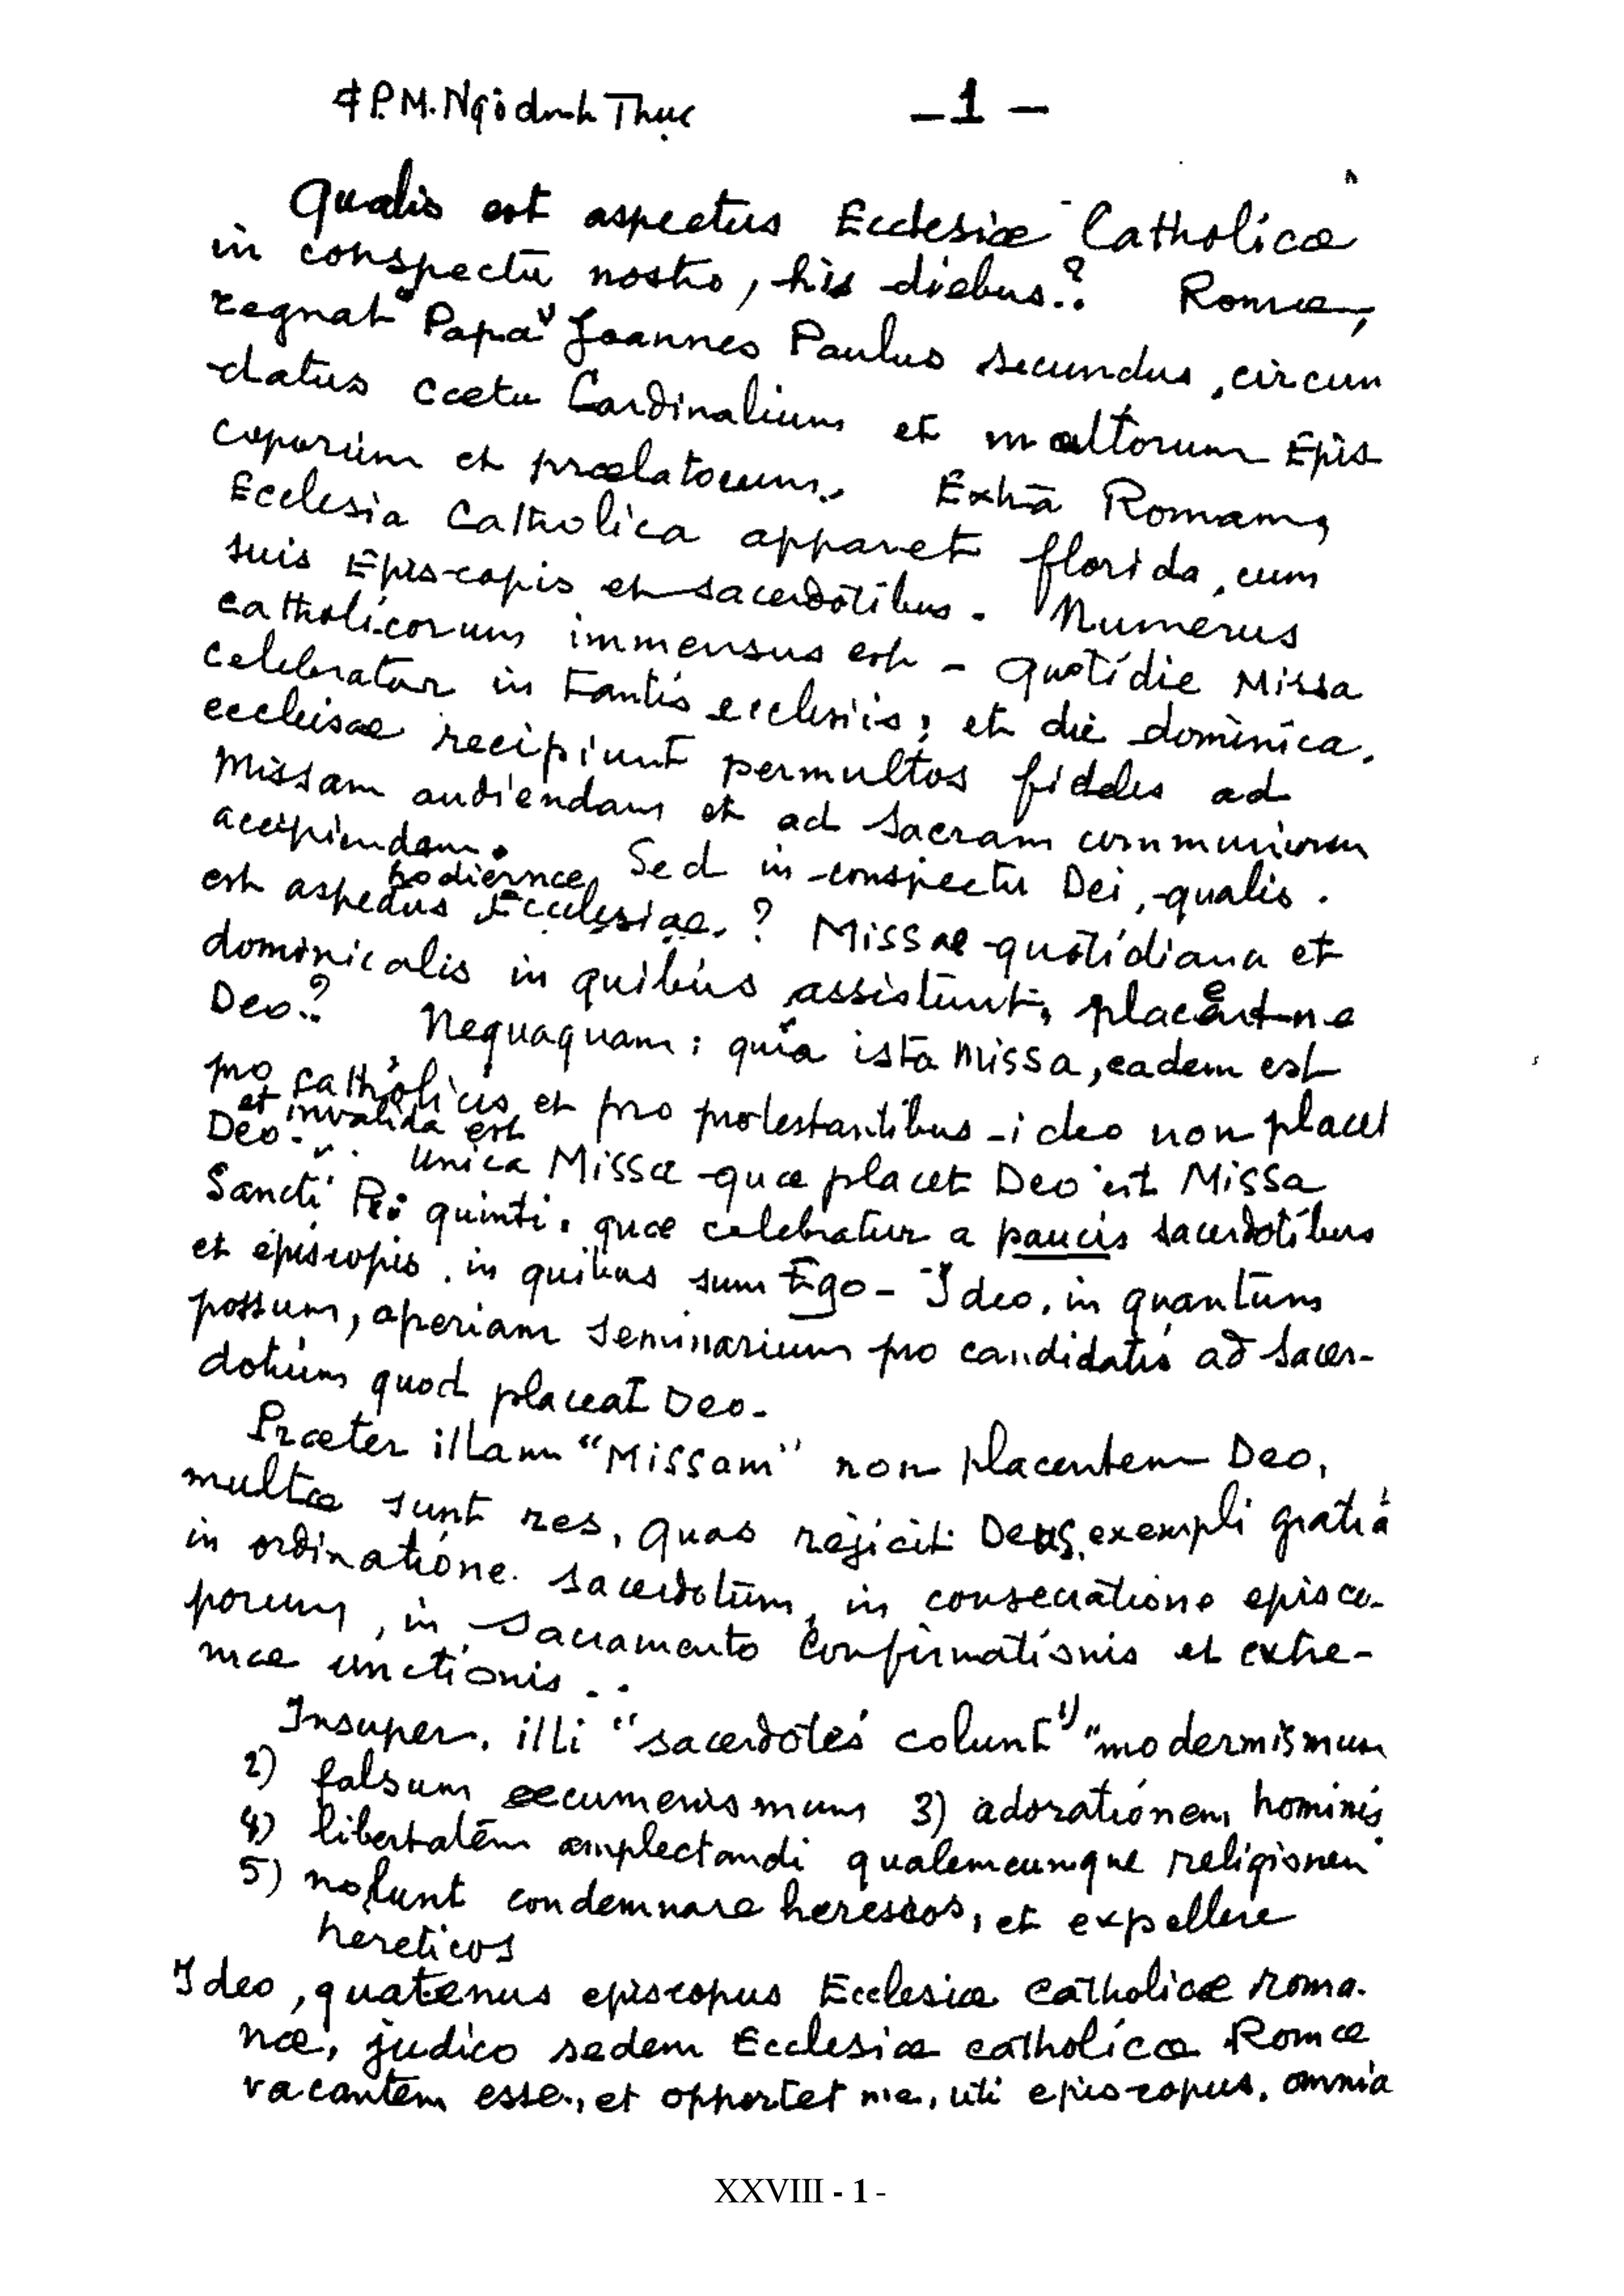 ☩ P.M. Ngô dinh Thục
– 1 –
Qualis est aspectus Ecclesiæ Catholicæ
in conspectū nostro, his diebus.? Romæ,
regnat "Papa" Joannes Paulus secundus, circun
datus Cœtu Cardinalium et multorum Epis
coporum et prælatorum. Extrā Romam,
Ecclesia Catholica apparet florida, cum
suis Episcopis et sacerdotibus. Numerus
catholicorum immensus est – Quotidie Missa
celebratur in tantis ecclesiis, et die dominica,
ecclesiae recipiunt permultos fideles ad
Missam audiendam et ad sacram communionem
accipiendam. Sed in conspectu Dei, qualis
est aspectus hodiernæ Ecclesiae.? Missae quotidiana et
dominicalis in quibus assistunt, placent-ne
Deo? Nequaquam: quia ista Missa, eadem est
pro catholicis et pro protestantibus – ideo non placet
Deo et invalida est. Unica Missa quæ placet Deo est Missa
Sancti Pii quinti, quæ celebratur a paucis sacerdotibus
et episcopis, in quibus sum Ego – Ideo, in quantum
possum, aperiam seminarium pro candidatis ad sacer-
dotium quod placeat Deo.
Præter illam "Missam" non placentem Deo,
multæ sunt res, quas rejicit Deus, exempli gratiâ
in ordinatione sacerdotum, in consecratione episco-
porum, in sacramento confirmationis et extre-
mæ unctionis..
Insuper, illi "sacerdotes colunt 1) "modernismum
2) falsum œcumenismum 3) adorationem hominis
4) libertatem amplectandi qualemcumque religionem
5) nolunt condemnare heresos, et expellere
hereticos
Ideo, quatenus episcopus Ecclesiæ catholicæ roma-
næ, judico sedem Ecclesiæ catholicæ Romæ
vacantem esse, et opportet me, uti episcopus, omnia
XXVIII - 1 -